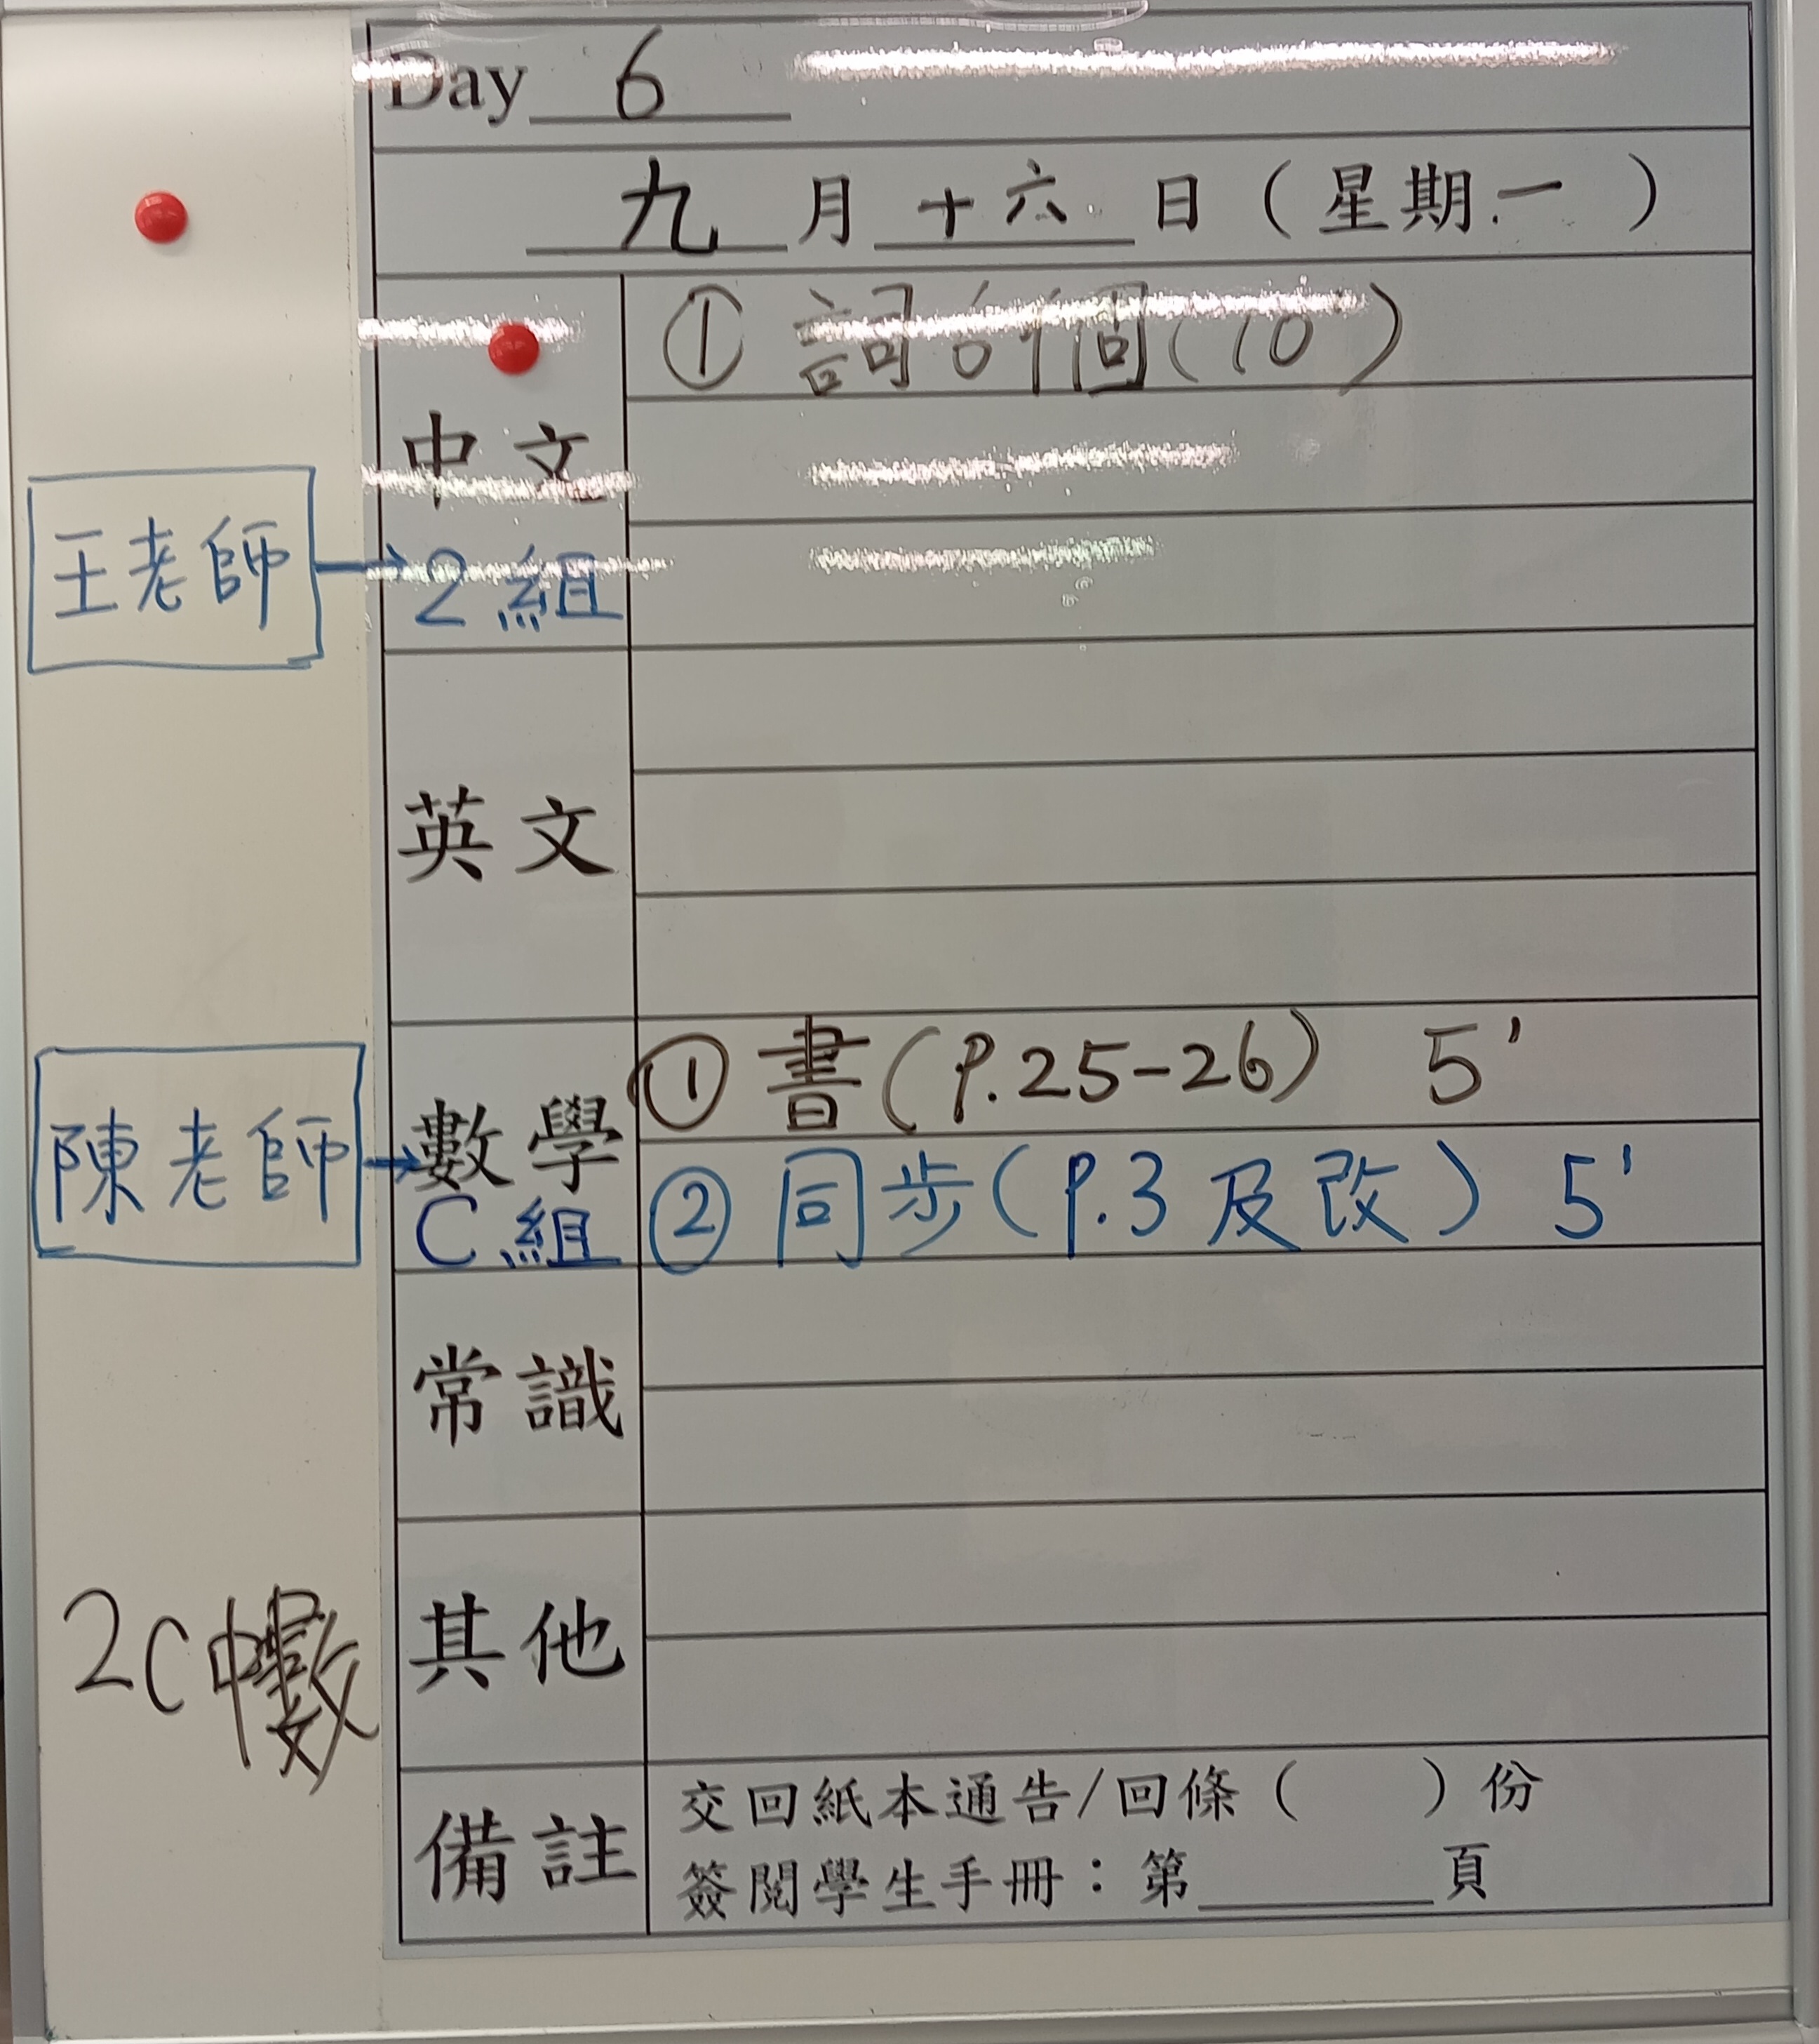 Day 6
九月十六日（星期一）
中文
① 詞 個(10')
王老師 → 2組
英文
數學
① 書(P.25-26) 5'
② 同步(P.3及改) 5'
陳老師 → C組
常識
其他
2C中數
備註
交回紙本通告/回條（ ）份
簽閱學生手冊：第 頁